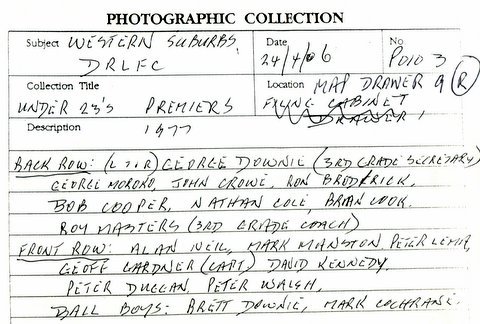 PHOTOGRAPHIC COLLECTION
Subject WESTERN SUBURBS Date No
DRLFC 24/4/06 P010 3
Collection Title Location MAP DRAWER 9 (R)
UNDER 23's PREMIERS FILING CABINET
DRAWER 1
Description 1977
BACK ROW: (L to R) GEORGE DOWNIE (3RD GRADE SECRETARY)
GEORGE MOROKO, JOHN CROWE, RON BRODRICK,
BOB COOPER, NATHAN COLE, BRIAN COOK,
ROY MASTERS (3RD GRADE COACH)
FRONT ROW: ALAN NEIL, MARK MANSTON, PETER
GEOFF GARDNER (CAPT) DAVID KENNEDY,
PETER DUGGAN, PETER WALSH,
BALL BOYS: BRETT DOWNIE, MARK COCHRANE.